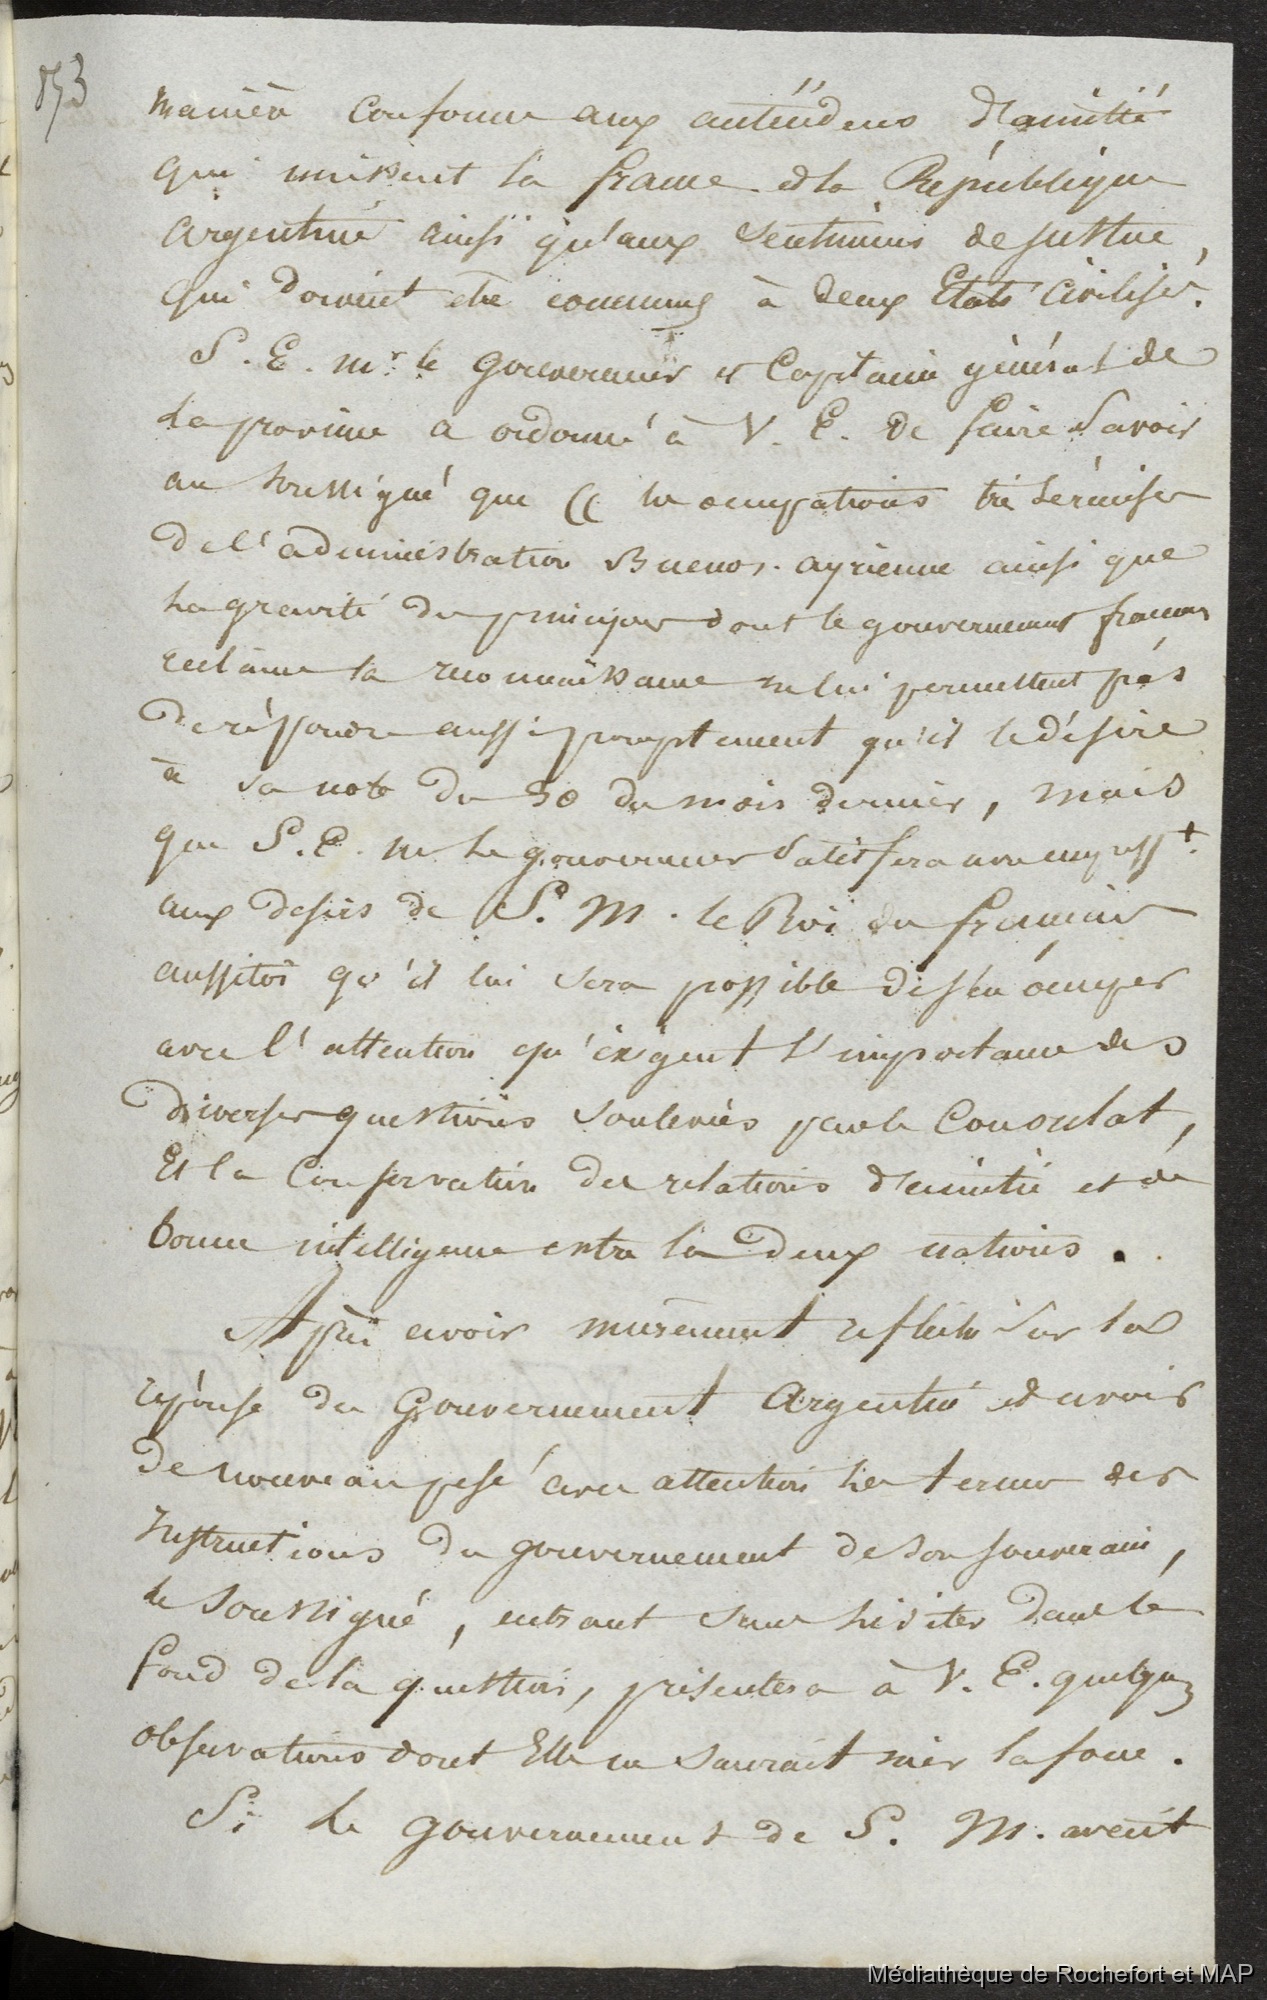 853
manière conforme aux antécédens d'amitié
qui unissent la france et la République
argentine ainsi qu'aux sentimens de justice,
qui doivent être communs à deux Etats civilisés.
S. E. mr. le gouverneur et Capitaine général de
la province a ordonné à V. E. de faire savoir
au soussigné que (( les occupations très sérieuses
de l'administration Buenos-ayrienne ainsi que
la gravité du principe dont le gouvernement francais
réclame la reconnaissance ne lui permettent pas
de répondre aussi promptement qu'il le désire
à sa note du 30 du mois dernier, mais
que S. E. mr le gouverneur satisfera avec empresst.
aux desirs de S. M. le Roi des francais
aussitôt qu'il lui sera possible de s'en occuper
avec l'attention qu'exigent l'importance des
diverses questions soulevées par le Consulat,
Et la Conservation des relations d'amitié et de
bonne intelligence entre les deux nations.
Après avoir murement réfléchi sur la
réponse du Gouvernement Argentin et avoir
de nouveau pesé avec attention les termes des
Instructions du gouvernement de son souverain,
le soussigné, entrant sans hésiter dans le
fond de la question, présentera à V. E. quelques
observations dont Elle ne saurait nier la force.
Si le gouvernement de S. M. avait
Médiathèque de Rochefort et MAP